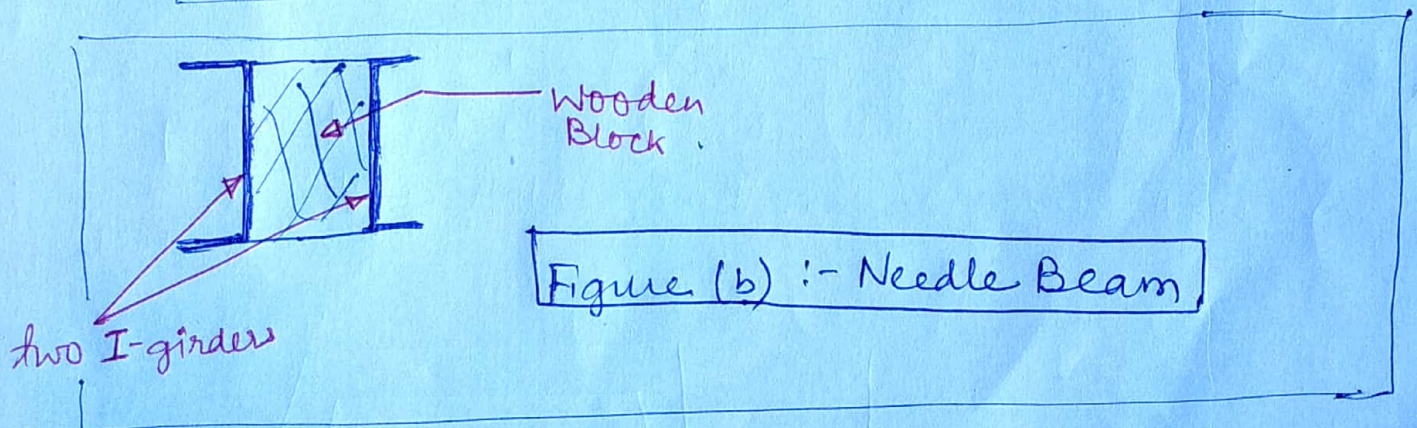 Wooden
Block .
Figure (b) :- Needle Beam
two I-girders